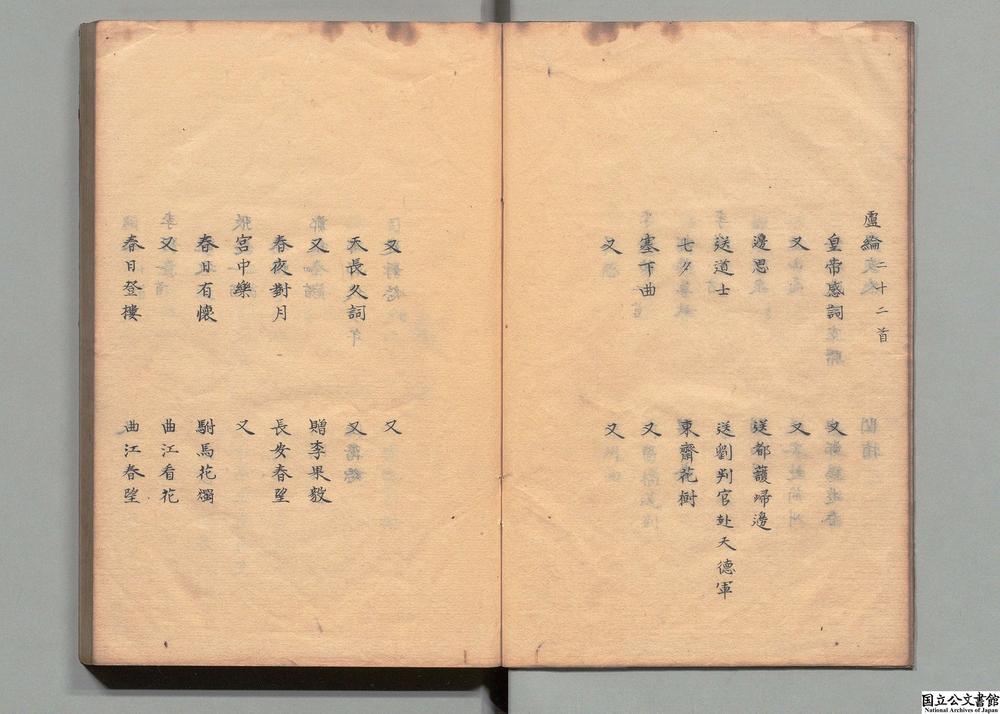 盧綸 二十二首
皇帝感詞 又
又 又
邊思 送都護歸邊
送道士 送劉判官赴天德軍
七夕 東齋花樹
塞下曲 又
又 又
又 又
天長久詞 又
又 贈李果毅
春夜對月 長安春望
宮中樂 又
春日有懷 駙馬花燭
又 曲江看花
春日登樓 曲江春望
国立公文書館
National Archives of Japan